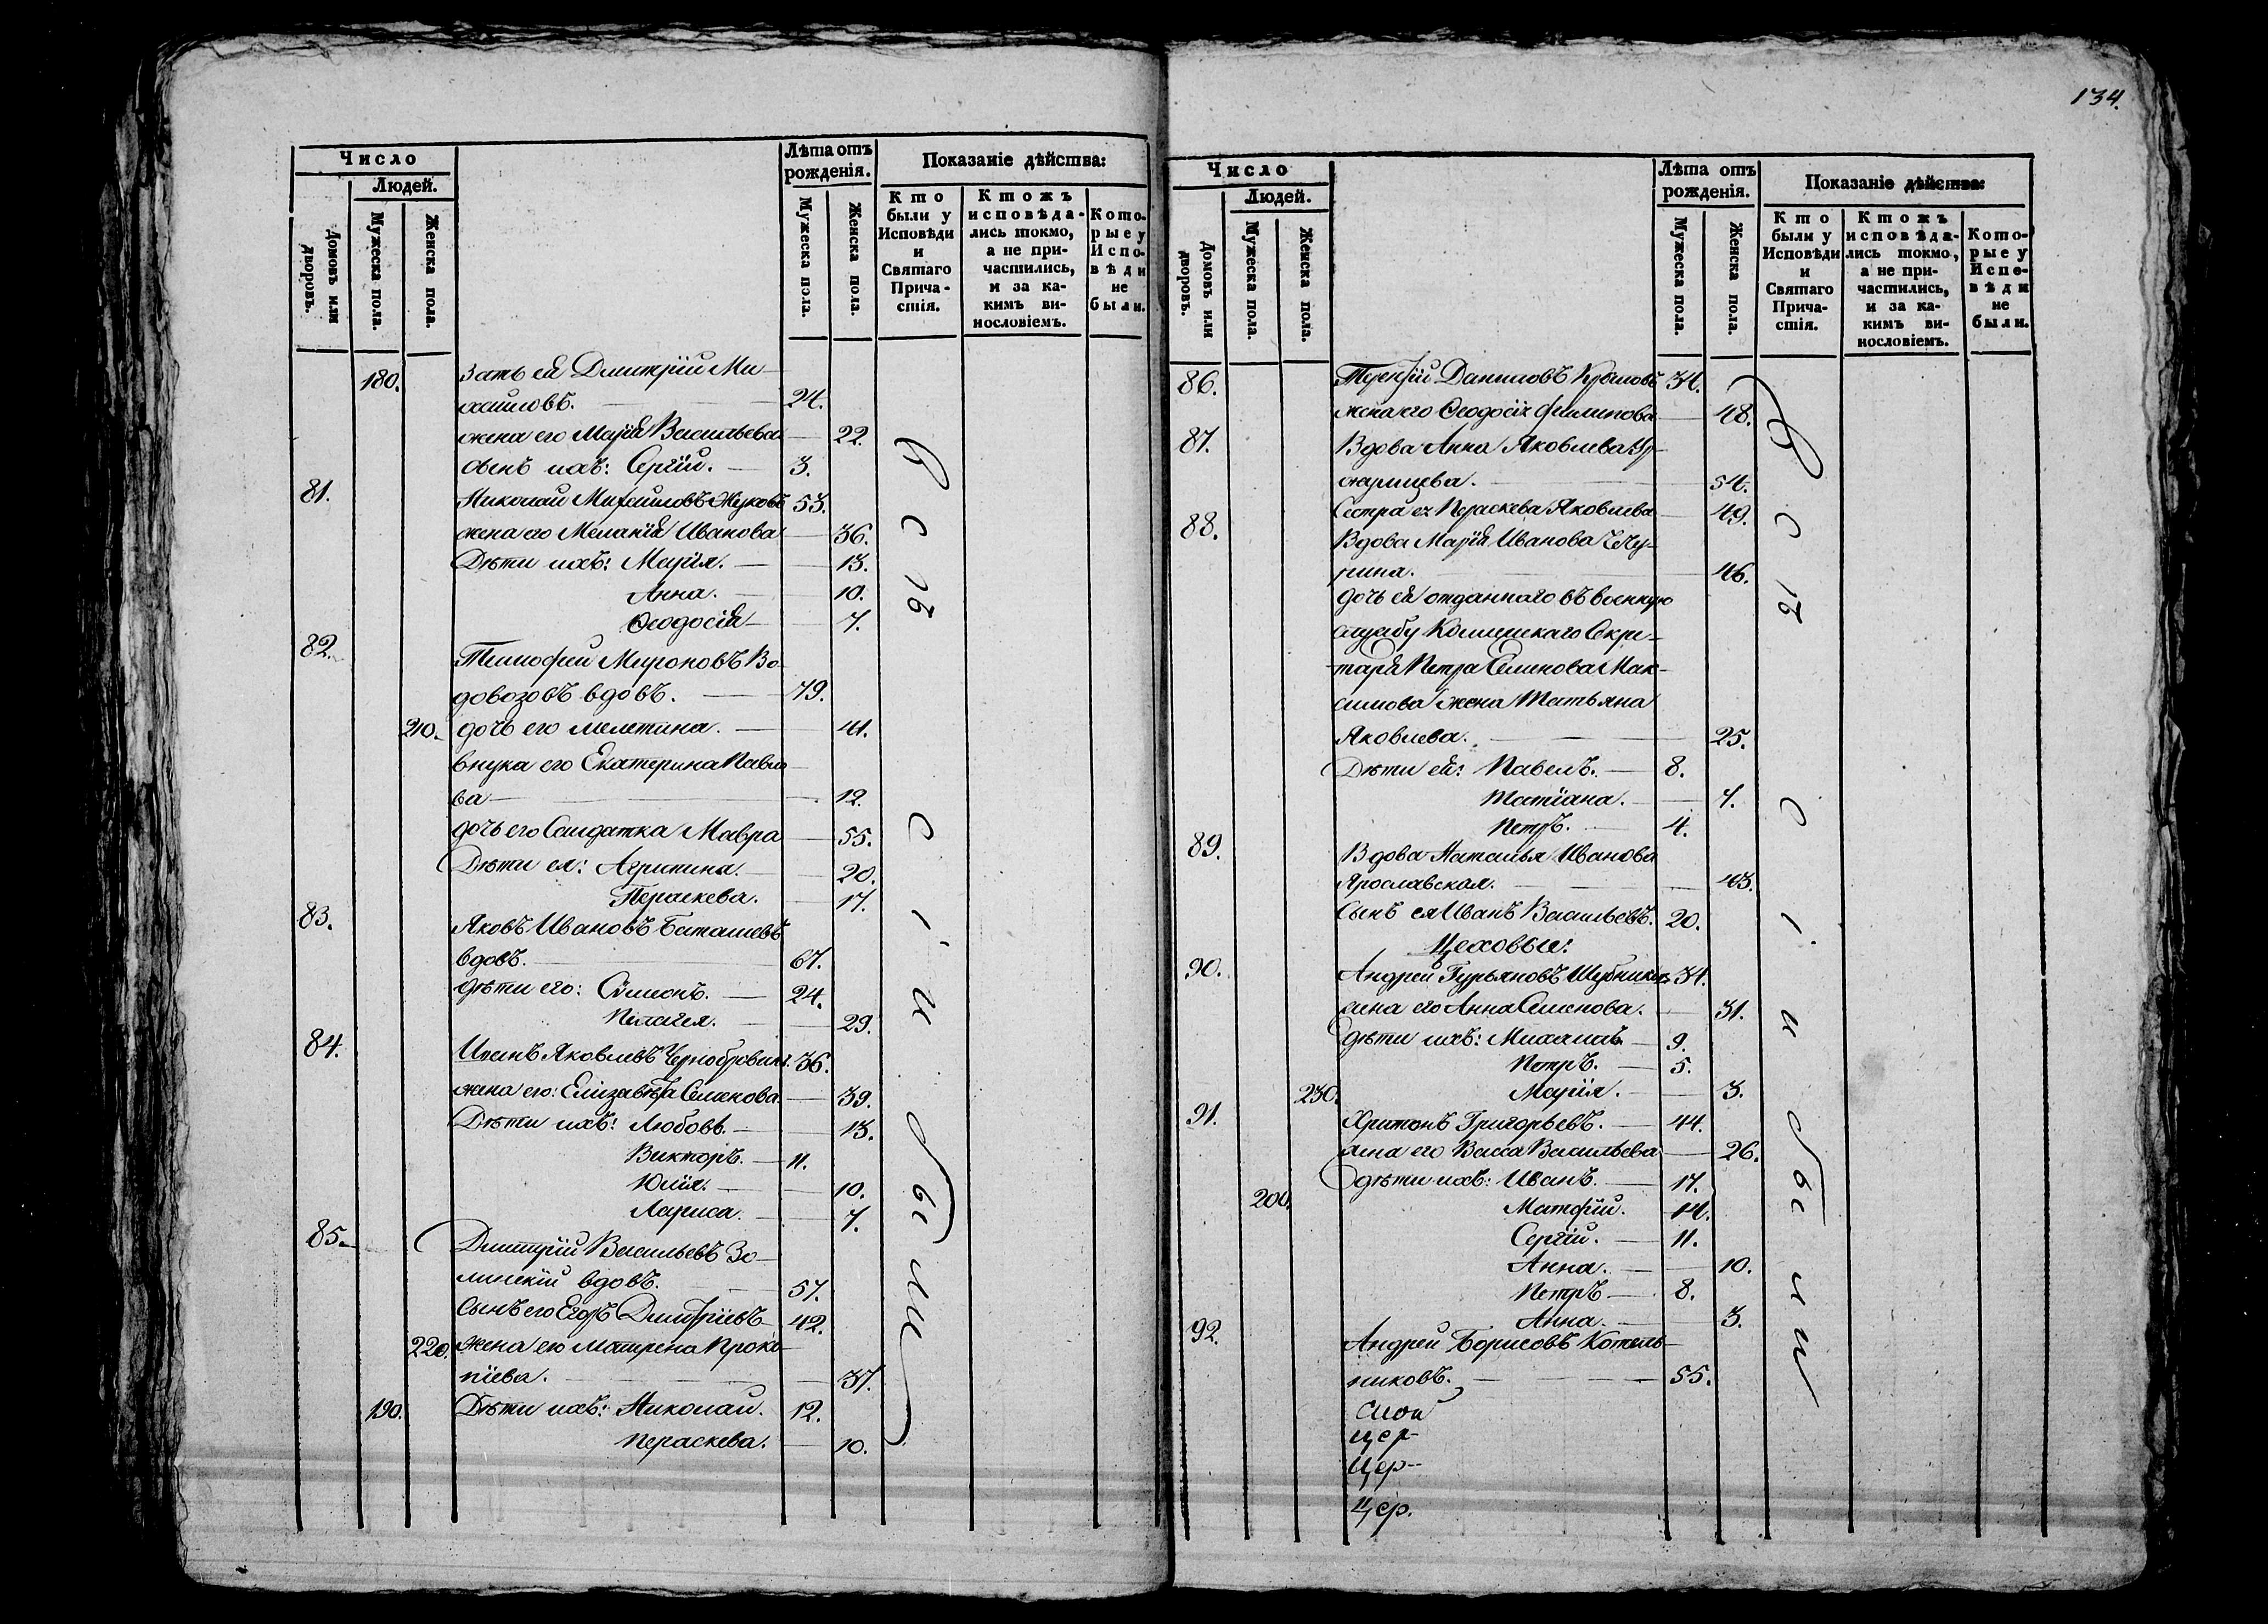 134.
Число
Людей.
Домовъ или дворовъ.
Мужеска пола.
Женска пола.
Лѣта отъ рожденія.
Мужеска пола.
Женска пола.
Показаніе дѣйства:
Кто были у Исповѣди и Святаго Прича-стія.
Ктожъ исповѣда-лись токмо, а не при-частились, и за ка-кимъ ви-нословіемъ.
Кото-рые у Испо-вѣди не были.
180. Зять ея Дмитрій Ми-
хайловъ. 24.
жена его Марія Васильева 22.
сынъ ихъ: Сергій. 3.
81. Николай Михайловъ Жуковъ 53.
жена его Меланія Иванова 36.
Дѣти ихъ: Марія. 13.
Анна. 10.
Ѳеодосія 7.
82. Тимофей Мироновъ Во-
довозовъ вдовъ. 79.
210. дочь его 41.
внука его Екатерина Павло
ва 12.
дочь его Салдатка Мавра 55.
Дѣти ея: Агрипина. 20.
Пераскева. 17.
83. Яковъ Ивановъ Баташевъ
вдовъ. 67.
дѣти его: Сѵмеонъ. 24.
Пелагея. 29.
84. Яковлевъ 36.
жена его: Елизавета Семенова. 39.
Дѣти ихъ: Любовь. 13.
Викторъ. 11.
Юлія. 10.
Лариса. 7.
85. Дмитрій Васильевъ Зо-
линскій вдовъ. 57.
Сынъ его Егоръ Димитріевъ 42.
220. жена его Матрена Проко
піева. 37.
190. Дѣти ихъ: Николай. 12.
Пераскева. 10.
всѣ
были
Число
Людей.
Домовъ или дворовъ.
Мужеска пола.
Женска пола.
Лѣта отъ рожденія.
Мужеска пола.
Женска пола.
Показаніе дѣйства:
Кто были у Исповѣди и Святаго Прича-стія.
Ктожъ исповѣда-лись токмо, а не при-частились, и за ка-кимъ ви-нословіемъ.
Кото-рые у Испо-вѣди не были.
86. Даниловъ Крыловъ 34.
жена его Ѳеодосія Филипова 48.
87. Вдова Анна Яковлева
54.
Сестра ея Пераскева Яковлева 49.
88. Вдова Марія Иванова Чку-
рина. 46.
дочь ея отданнаго въ военную
службу Колежскаго Секре-
таря Петра Семенова Мак-
симова жена Татьяна
Яковлева. 25.
Дѣти ея: Павелъ. 8.
Татіана. 7.
Петръ. 4.
89. Вдова Наталья Иванова
Ярославская. 43.
Сынъ ея Иванъ Васильевъ. 20.
Цеховые:
90. Андрей Гурьяновъ Шубниковъ 34.
жена его Анна Семенова. 31.
дѣти ихъ: Михаилъ 9.
Петръ. 5.
230. Марія. 3.
91. Харитонъ Григорьевъ. 44.
жена его Васса Васильева 26.
дѣти ихъ: Иванъ. 17.
200. Матфій. 14.
Сергій. 11.
Анна. 10.
Петръ 8.
Анна. 3.
92. Андрей Борисовъ Котель-
никовъ. 55.
цер-
цер--
цер.
всѣ
были